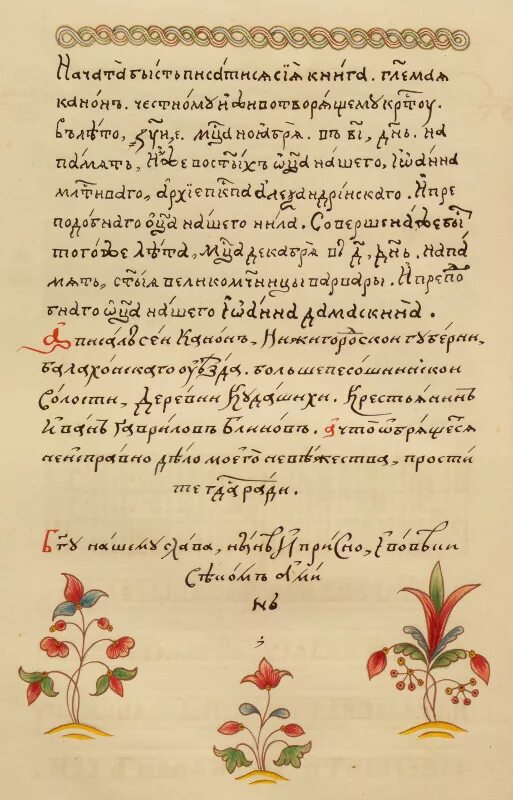 Начата бысть писатися сїѧ книга. гл҃емая
канонъ. честному и҆ животворящему крⷭ҇ту.
въ лѣто, ҂зун҃е. мц҃а ноѧбрѧ. въ в҃і, дн҃ь. на
память, и҆же во ст҃ыхъ ѻц҃а нашего, і҆ѡанна
млⷭ҇тиваго, а҆рхїепⷭ҇кпа алеѯандрїнскаго. И҆ пре
подобнаго ѻц҃а нашего нила. Совершена же бы́
тогоже лѣта, мц҃а декабрѧ въ д҃, дн҃ь. на па
мять, ст҃ыѧ великомч҃нницы варвары. И҆ препⷣо
бнаго ѻц҃а нашего І҆ѡанна дамаскина.
а писалъ сеи Канонъ, Нижигороⷣскои губерни,
балахонскаго оуѣзда. большепесошнинскои
волости, деревни Кудашихи. Крестьянинъ
Иванъ Гавриловъ Блиновъ. а что ѡбрящеⷮсѧ
неисправно дѣло моегѡ невѣжества, прости
те гдⷭ҇а ради.
Бг҃у нашему слава, нн҃ѣ и҆ присно, и҆ во вѣки
вѣкомъ ами
нь